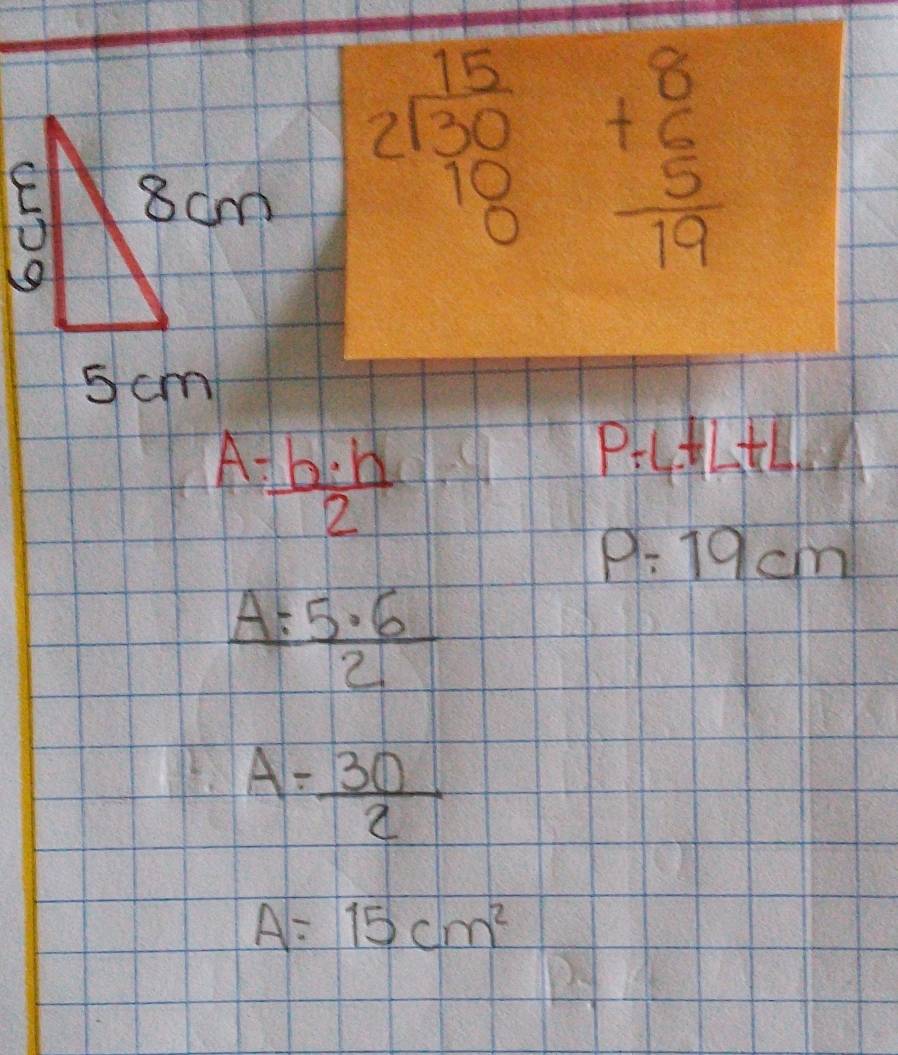 6cm
8cm
5cm
15
2 30
10
0
8
+ 6
5
19
A = b·h
2
P = L+L+L
P = 19 cm
A = 5·6
2
A = 30
2
A = 15 cm²